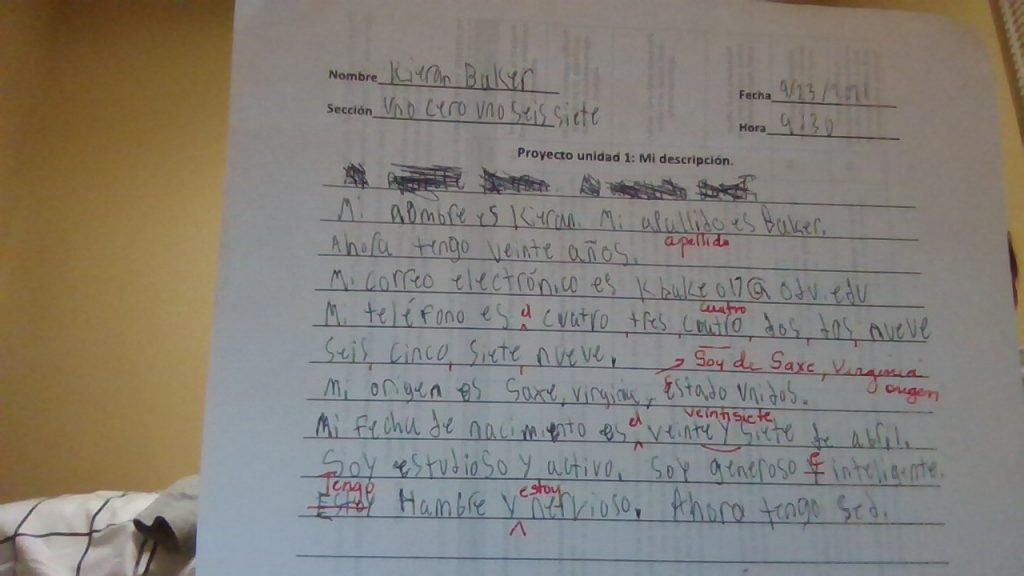 Nombre Kieran Baker
Fecha 9/23/2021
Sección Uno cero uno seis siete
Hora 9:30
Proyecto unidad 1: Mi descripción.
Mi nombre es Kieran. Mi apullido es Baker.
apellido
Ahora tengo veinte años.
Mi correo electrónico es Kbake017@odu.edu
cuatro
Mi teléfono es el cuatro, tres, coutro, dos, dos, nueve
seis, cinco, siete, nueve.
→ Soy de Saxe, Virginia
origen
Mi origen es Saxe, Virginia, Estado Unidos.
veintisiete
Mi fecha de nacimiento es el veinte y siete de abril.
Soy estudioso y activo. Soy generoso E inteligente.
Tengo estoy
Estoy Hambre y nervioso. Ahora tengo sed.